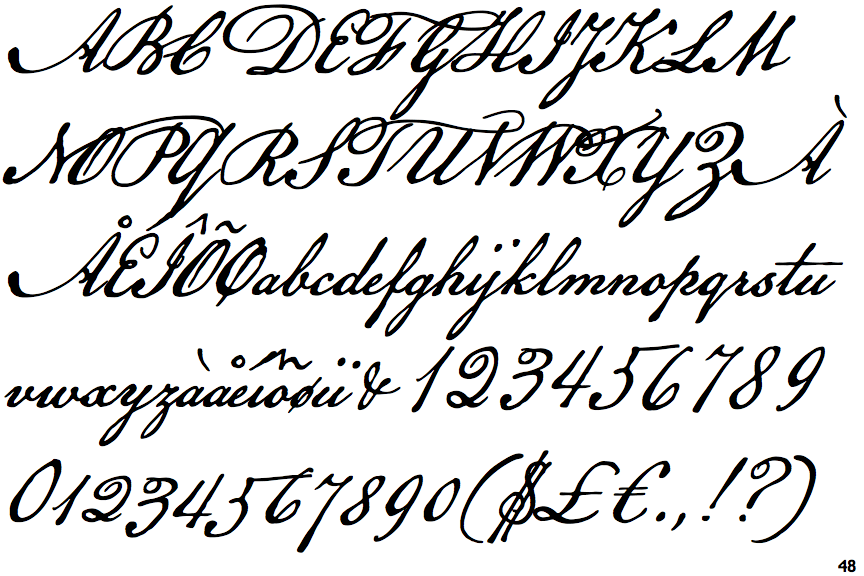 ABCDEFGHIJKLM
NOPQRSTUVWXYZÀ
ÅÉÎÕØabcdefghijklmnopqrstu
vwxyzàåéîõøü& 123456789
01234567890($£€.,!?)
48